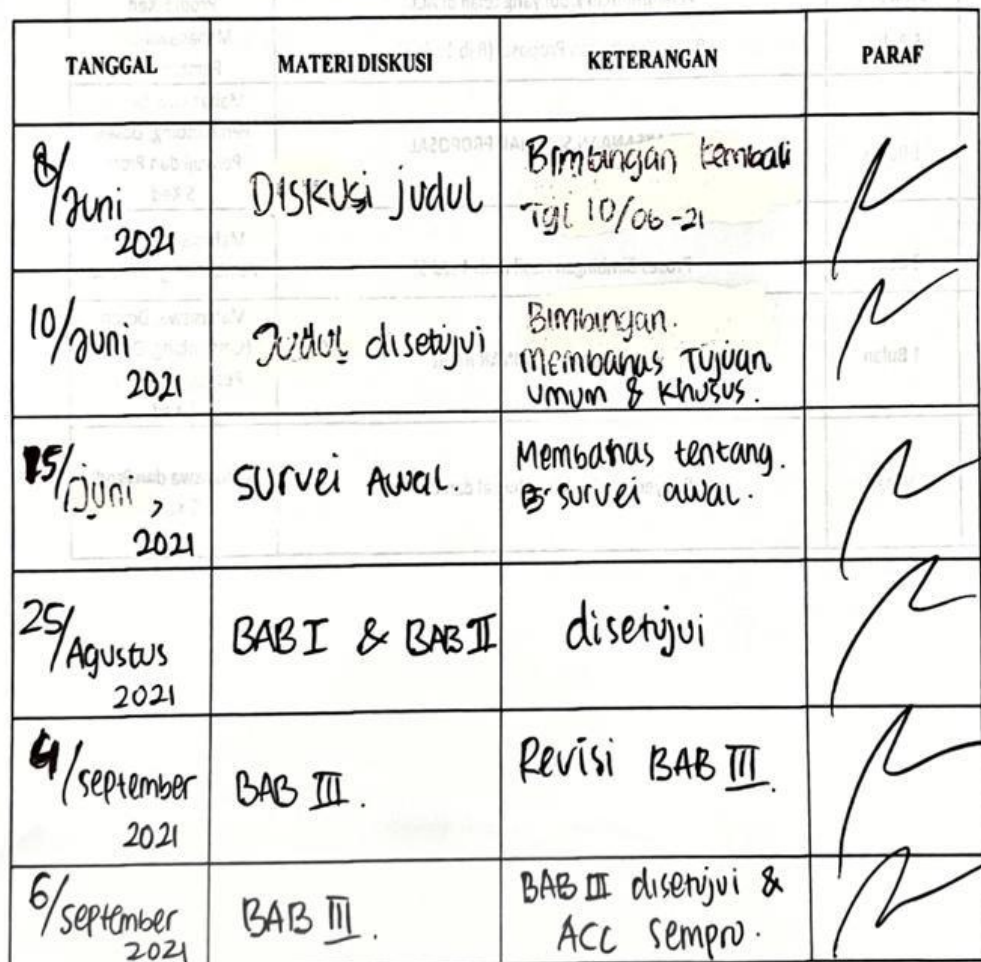 TANGGAL MATERI DISKUSI KETERANGAN PARAF
8/Juni 2021
Diskusi judul
Bimbingan kembali
Tgl 10/06-21
10/Juni 2021
Judul disetujui
Bimbingan.
Membahas Tujuan
umum & khusus.
15/juni, 2021
Survei Awal.
Membahas tentang.
survei awal.
25/Agustus 2021
BAB I & BAB II
disetujui
4/September 2021
BAB III.
Revisi BAB III
6/September 2021
BAB III.
BAB III disetujui &
ACC sempro.